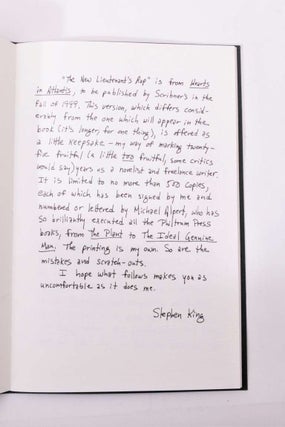 "The New Lieutenant's Rap" is from Hearts
in Atlantis, to be published by Scribner's in the
fall of 1999. This version, which differs consid-
erably from the one which will appear in the
book (it's longer, for one thing), is offered as
a little keepsake - my way of marking twenty-
five fruitful (a little too fruitful, some critics
would say) years as a novelist and freelance writer.
It is limited to no more than 500 copies,
each of which has been signed by me and
numbered or lettered by Michael Alpert, who has
so brilliantly executed all the Philtrum Press
books, from The Plant to The Ideal Genuine
Man. The printing is my own. So are the
mistakes and scratch-outs.
I hope what follows makes you as
uncomfortable as it does me.
Stephen King